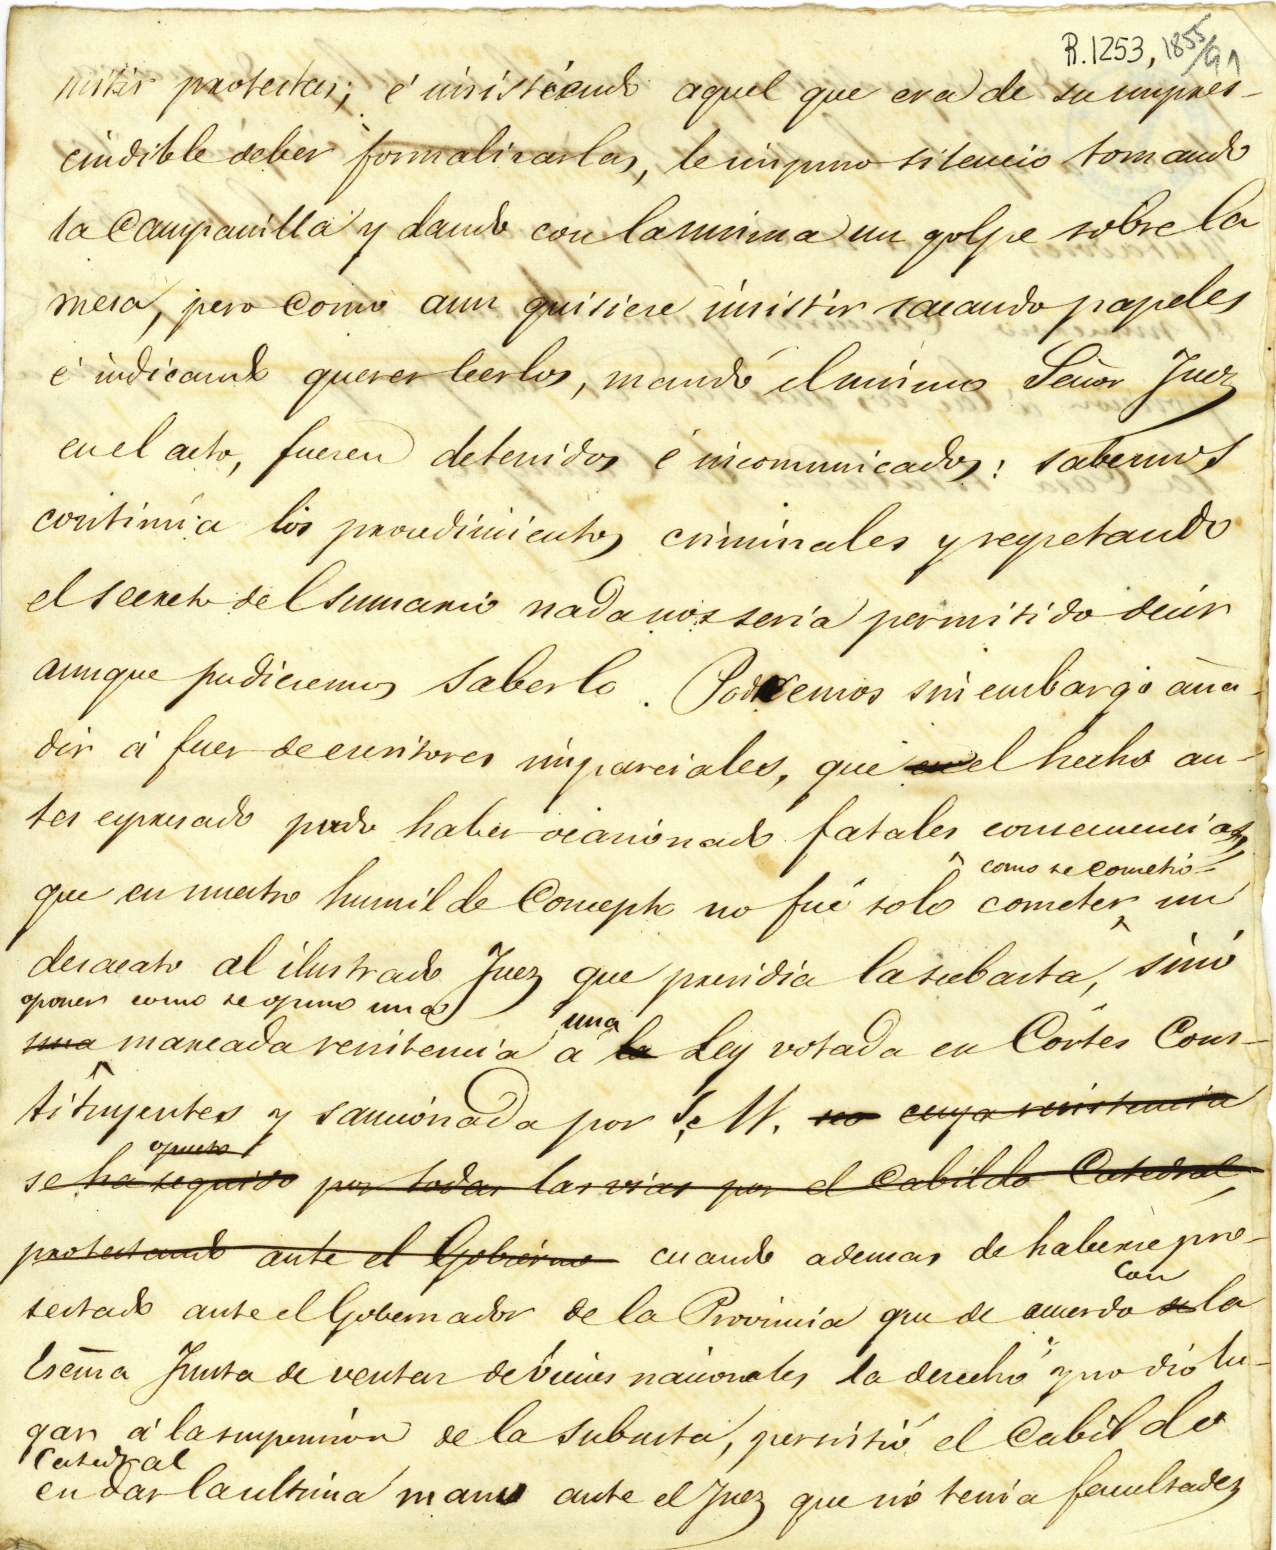 R.1253, 1855/91
mitir protestas; é insistiendo aquel que era de su impres-
cindible deber formalizarlas, le impuso silencio tomando
la Campanilla y dando con la misma un golpe sobre la
mesa, pero como aun quisiere insistir sacando papeles
é indicando querer leerlos, mandó el mismo Señor Juez
en el acto, fuesen detenidos é incomunicados: sabemos
continúa los procedimientos criminales y respetando
el secreto del Sumario nada nos seria permitido decir
aunque pudieremos saberlo. Podremos sin embargo aña-
dir á fuer de escritores imparciales, que en el hecho an-
tes espresado pudo haber ocasionado fatales consecuencias,
como se cometió
que en nuestro humilde Concepto no fué solo cometer un
desacato al ilustrado Juez que presidia la subasta, sinó
oponer como se opuso una
una marcada resistencia á la una Ley votada en Córtes Cons-
tituyentes y sancionada por S. M. no cuya resistencia
opuesto
se ha seguido por todas las vias por el Cabildo Catedral
protestando ante el Gobierno cuando ademas de haberse pro-
testado ante el Gobernador de la Provincia que de acuerdo de con la
Escma Junta de ventas de bienes nacionales la desechó y no dió lu-
gar á la suspension de la subasta, persistió el Cabildo
Catedral
en dar la ultima mano ante el Juez que nó tenia facultades